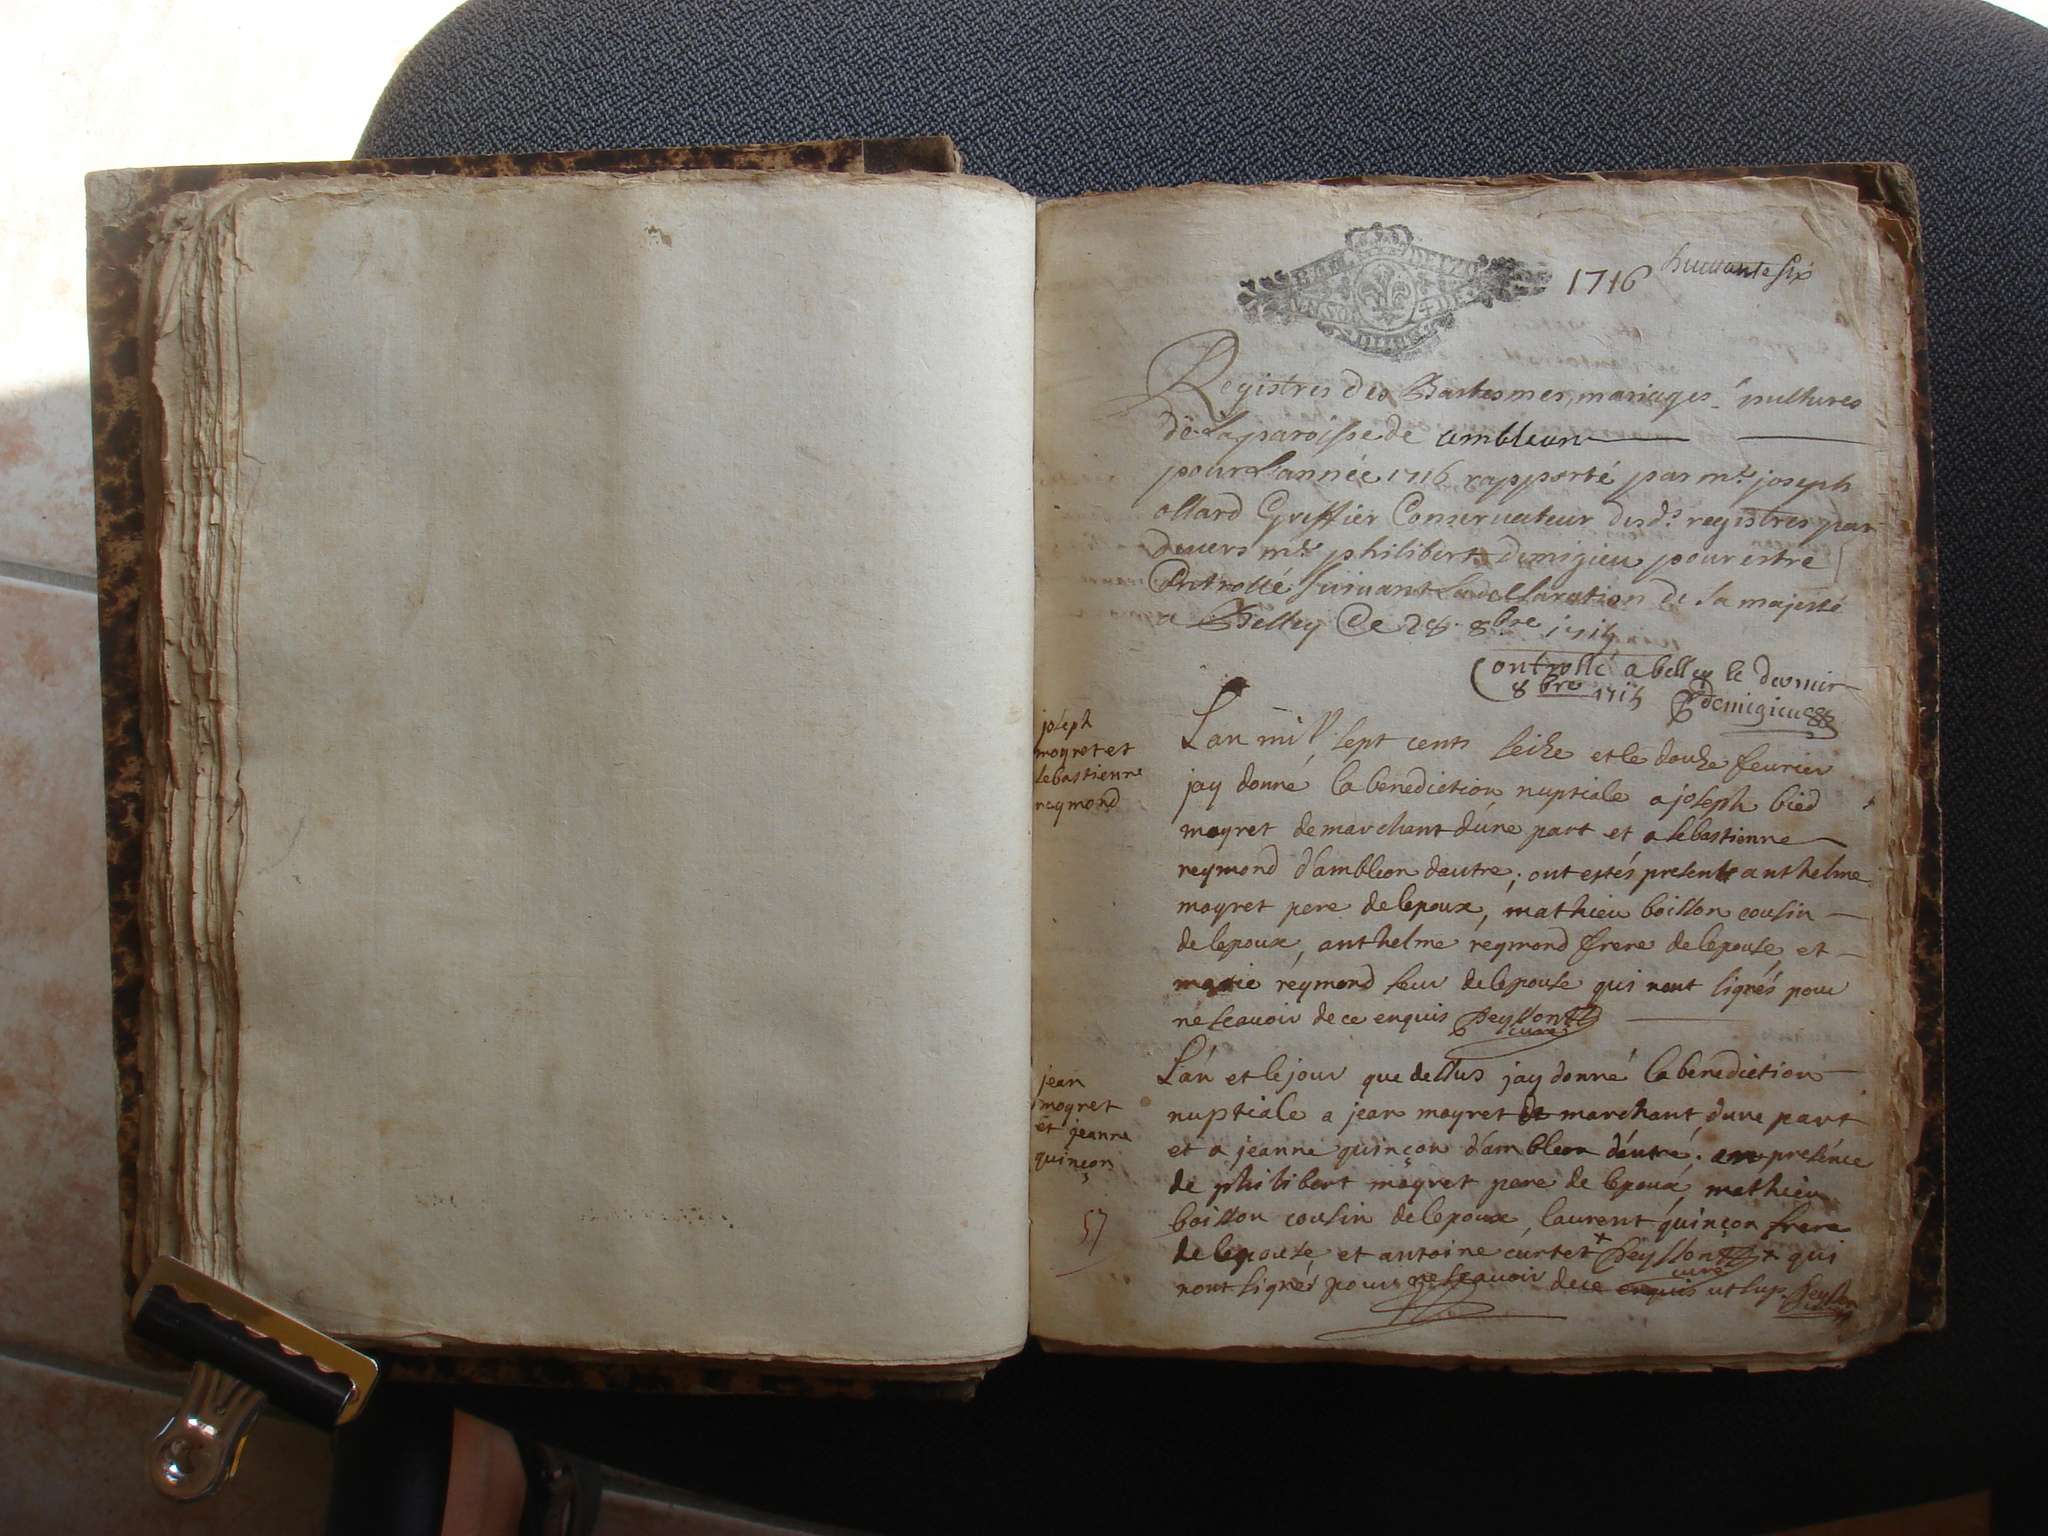 1716
huittante six
Registres des Baptesmes, mariages, sepultures
de la paroisse de ambleon
pour L'année 1716 rapporté par mre joseph
ollard Greffier Conservateur desds registres par
devers mre philibert demigieu pour estre
Controllé suivant la declaration de sa majesté
a Belley Ce 28 8bre 1715
Controllé a belley le dernier
8bre 1715 Demigieu
joseph
moyret et
sebastienne
reymond
Lan mil sept cents seize et le douze feurier
jay donné la benediction nuptiale a joseph bied
moyret de marchant dúne part et a sebastienne
reymond d'ambleon dautre; ont estés presents anthelme
moyret pere de lepoux, mathieu boisson cousin
de lepoux, anthelme reymond frere de lepouse, et
marie reymond seur de lepouse qui nont signés pour
ne scavoir de ce enquis Peysson
curé
jean
moyret
et jeanne
quinçon
57
L'an et le jour que dessus jay donné la benediction
nuptiale a jean moyret de marchant dune part
et a jeanne quinçon d'ambleon dautre. en presence
de philibert moyret pere de lepoux, mathieu
boisson cousin de lepoux, laurent quinçon frere
de lepouse, et antoine curtet + Peysson + qui
curé
nont signés pour ne scavoir de ce enquis ut sup. Peysson